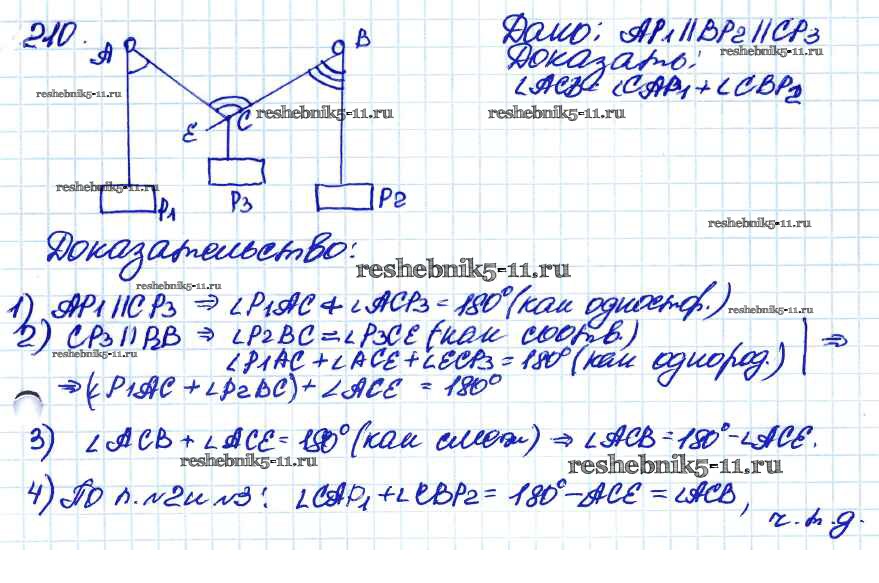 210.
Дано: AP1 || BP2 || CP3
Доказать:
∠ACB = ∠CAP1 + ∠CBP2
A
B
reshebnik5-11.ru
reshebnik5-11.ru
reshebnik5-11.ru
E
C
reshebnik5-11.ru
P1
P3
P2
reshebnik5-11.ru
Доказательство:
reshebnik5-11.ru
reshebnik5-11.ru
1) AP1 || CP3 ⇒ ∠P1AC + ∠ACP3 = 180° (как одностор.)
reshebnik5-11.ru
2) CP3 || P2B ⇒ ∠P2BC = ∠P3CE (как соотв.)
reshebnik5-11.ru
∠P1AC + ∠ACE + ∠ECP3 = 180° (как однород.) ⇒
⇒ (∠P1AC + ∠P2BC) + ∠ACE = 180°
3) ∠ACB + ∠ACE = 180° (как смеж) ⇒ ∠ACB = 180° - ∠ACE.
reshebnik5-11.ru
reshebnik5-11.ru
4) По п. №2 и №3: ∠CAP1 + ∠CBP2 = 180° - ACE = ∠ACB,
ч.т.д.